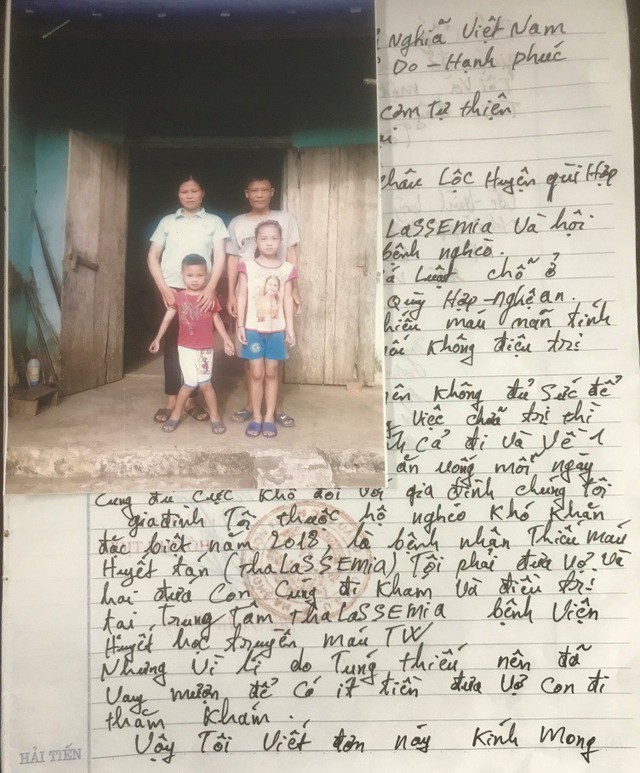 Nghĩa Việt Nam
Do - Hạnh phúc
cảm từ thiện
Châu Lộc Huyện quỳ Hợp
LaSSEmia Và hội
bệnh nghèo.
Luật chỗ ở
Quỳ Hợp - nghệ an.
thiếu máu mãn tính
không điều trị
nên không đủ sức để
Việc chữa trị thì
cả đi và Về 1
ăn uống mỗi ngày
Cũng đủ cực khổ đối với gia đình chúng Tôi
gia đình Tôi thuộc hộ nghèo khó khăn
đặc biệt năm 2018, là bệnh nhân Thiếu máu
Huyết tán (thaLaSSEmia) Tôi phải đưa vợ và
hai đứa con Cùng đi khám Và điều trị
tại Trung Tâm ThaLaSSEmia bệnh Viện
Huyết học truyền máu TW
Nhưng Vì lí do Túng thiếu nên đã
Vay mượn để có ít tiền đưa vợ con đi
thăm khám.
Vậy Tôi Viết đơn này kính mong
HẢI TIẾN